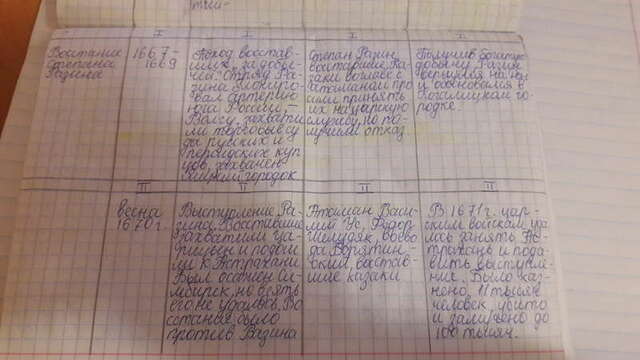 тыи-
I I I I I
Восстание
Степана
Разина
1667-
1669
Поход восстав-
ших за добы-
чей. Отряд Ра-
зина блокиро-
вал артерию
юга России, -
Волгу, захвати-
ли торговые су
да русских и
персидских куп
цов, захвачен
Яицкий городок
Степан Разин,
восставшие, ка-
заки во главе с
атаманом про
сили принять
их на царскую
службу, но по-
лучили отказ.
Получив богатую
добычу, Разин
вернулся на
и обосновался в
Кагальницком го-
родке.
II II II II
весна
1670 г.
Выступление Ра-
зина. Восставшие
захватили Ца-
рицын и подош
ли к Астрахани
Был осажен Си-
мбирск, но взять
его не удалось. Во
сстание было
против Разина
Атаман Васи-
лий Ус, Федор
Шелудяк, воево
да Борятин-
ский, восстав-
шие казаки
В 1671 г. цар-
ским войскам уда
лось занять Ас-
трахань и пода-
вить выступле-
ние. Было каз-
нено 11 тысяч
человек, убито
и замучено до
100 тысяч.